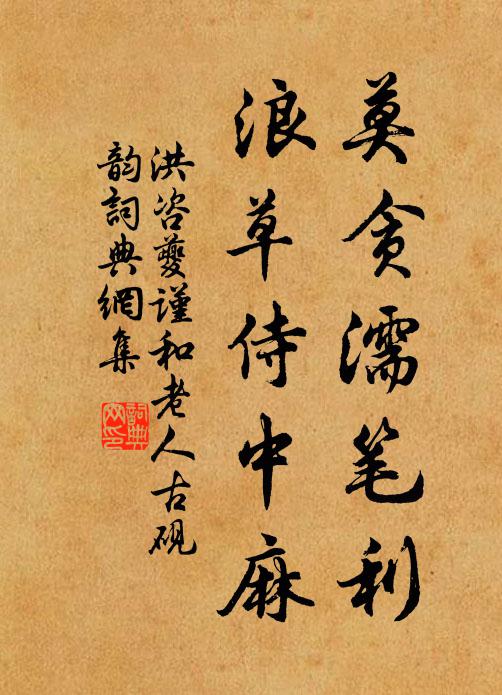 莫贪濡笔利
浪草侍中麻
洪咨夔謹和老人古硯
韵詞典網集
詞典
网印